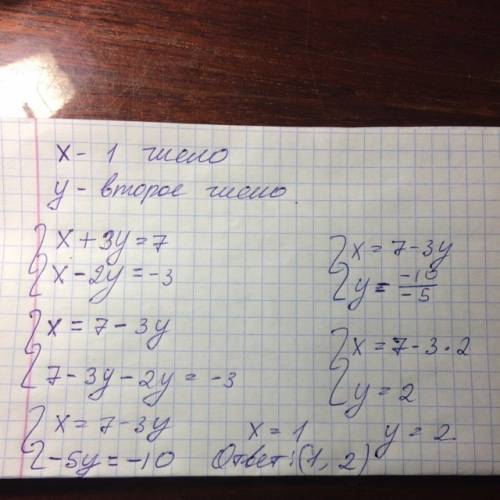 x - 1 число
y - второе число.
{ x + 3y = 7
{ x - 2y = -3
{ x = 7 - 3y
{ 7 - 3y - 2y = -3
{ x = 7 - 3y
{ -5y = -10
{ x = 7 - 3y
{ y = -10/-5
{ x = 7 - 3 · 2
{ y = 2
x = 1 y = 2
Ответ: (1, 2)